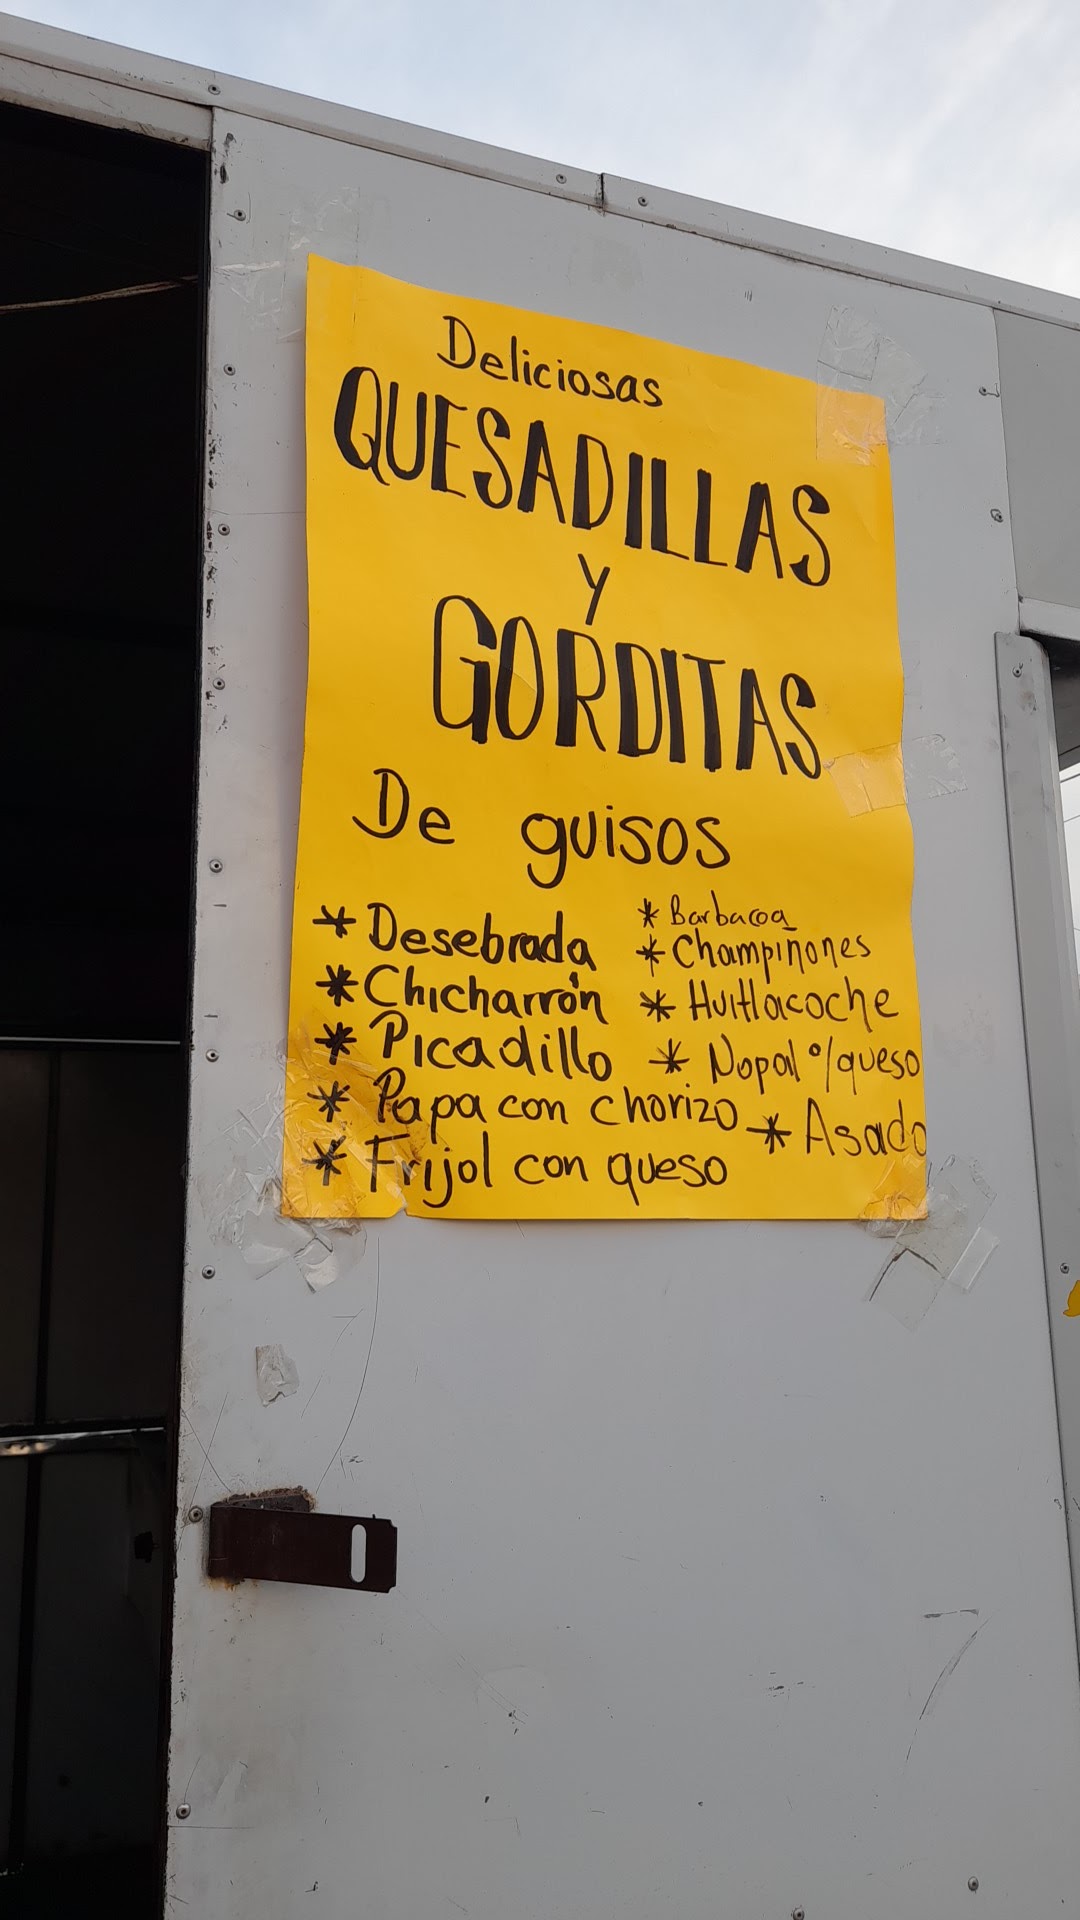 Deliciosas
QUESADILLAS
y
GORDITAS
De guisos
* Desebrada
* Chicharrón
* Picadillo
* Papa con chorizo
* Frijol con queso
* Barbacoa
* Champiñones
* Huitlacoche
* Nopal %queso
* Asado